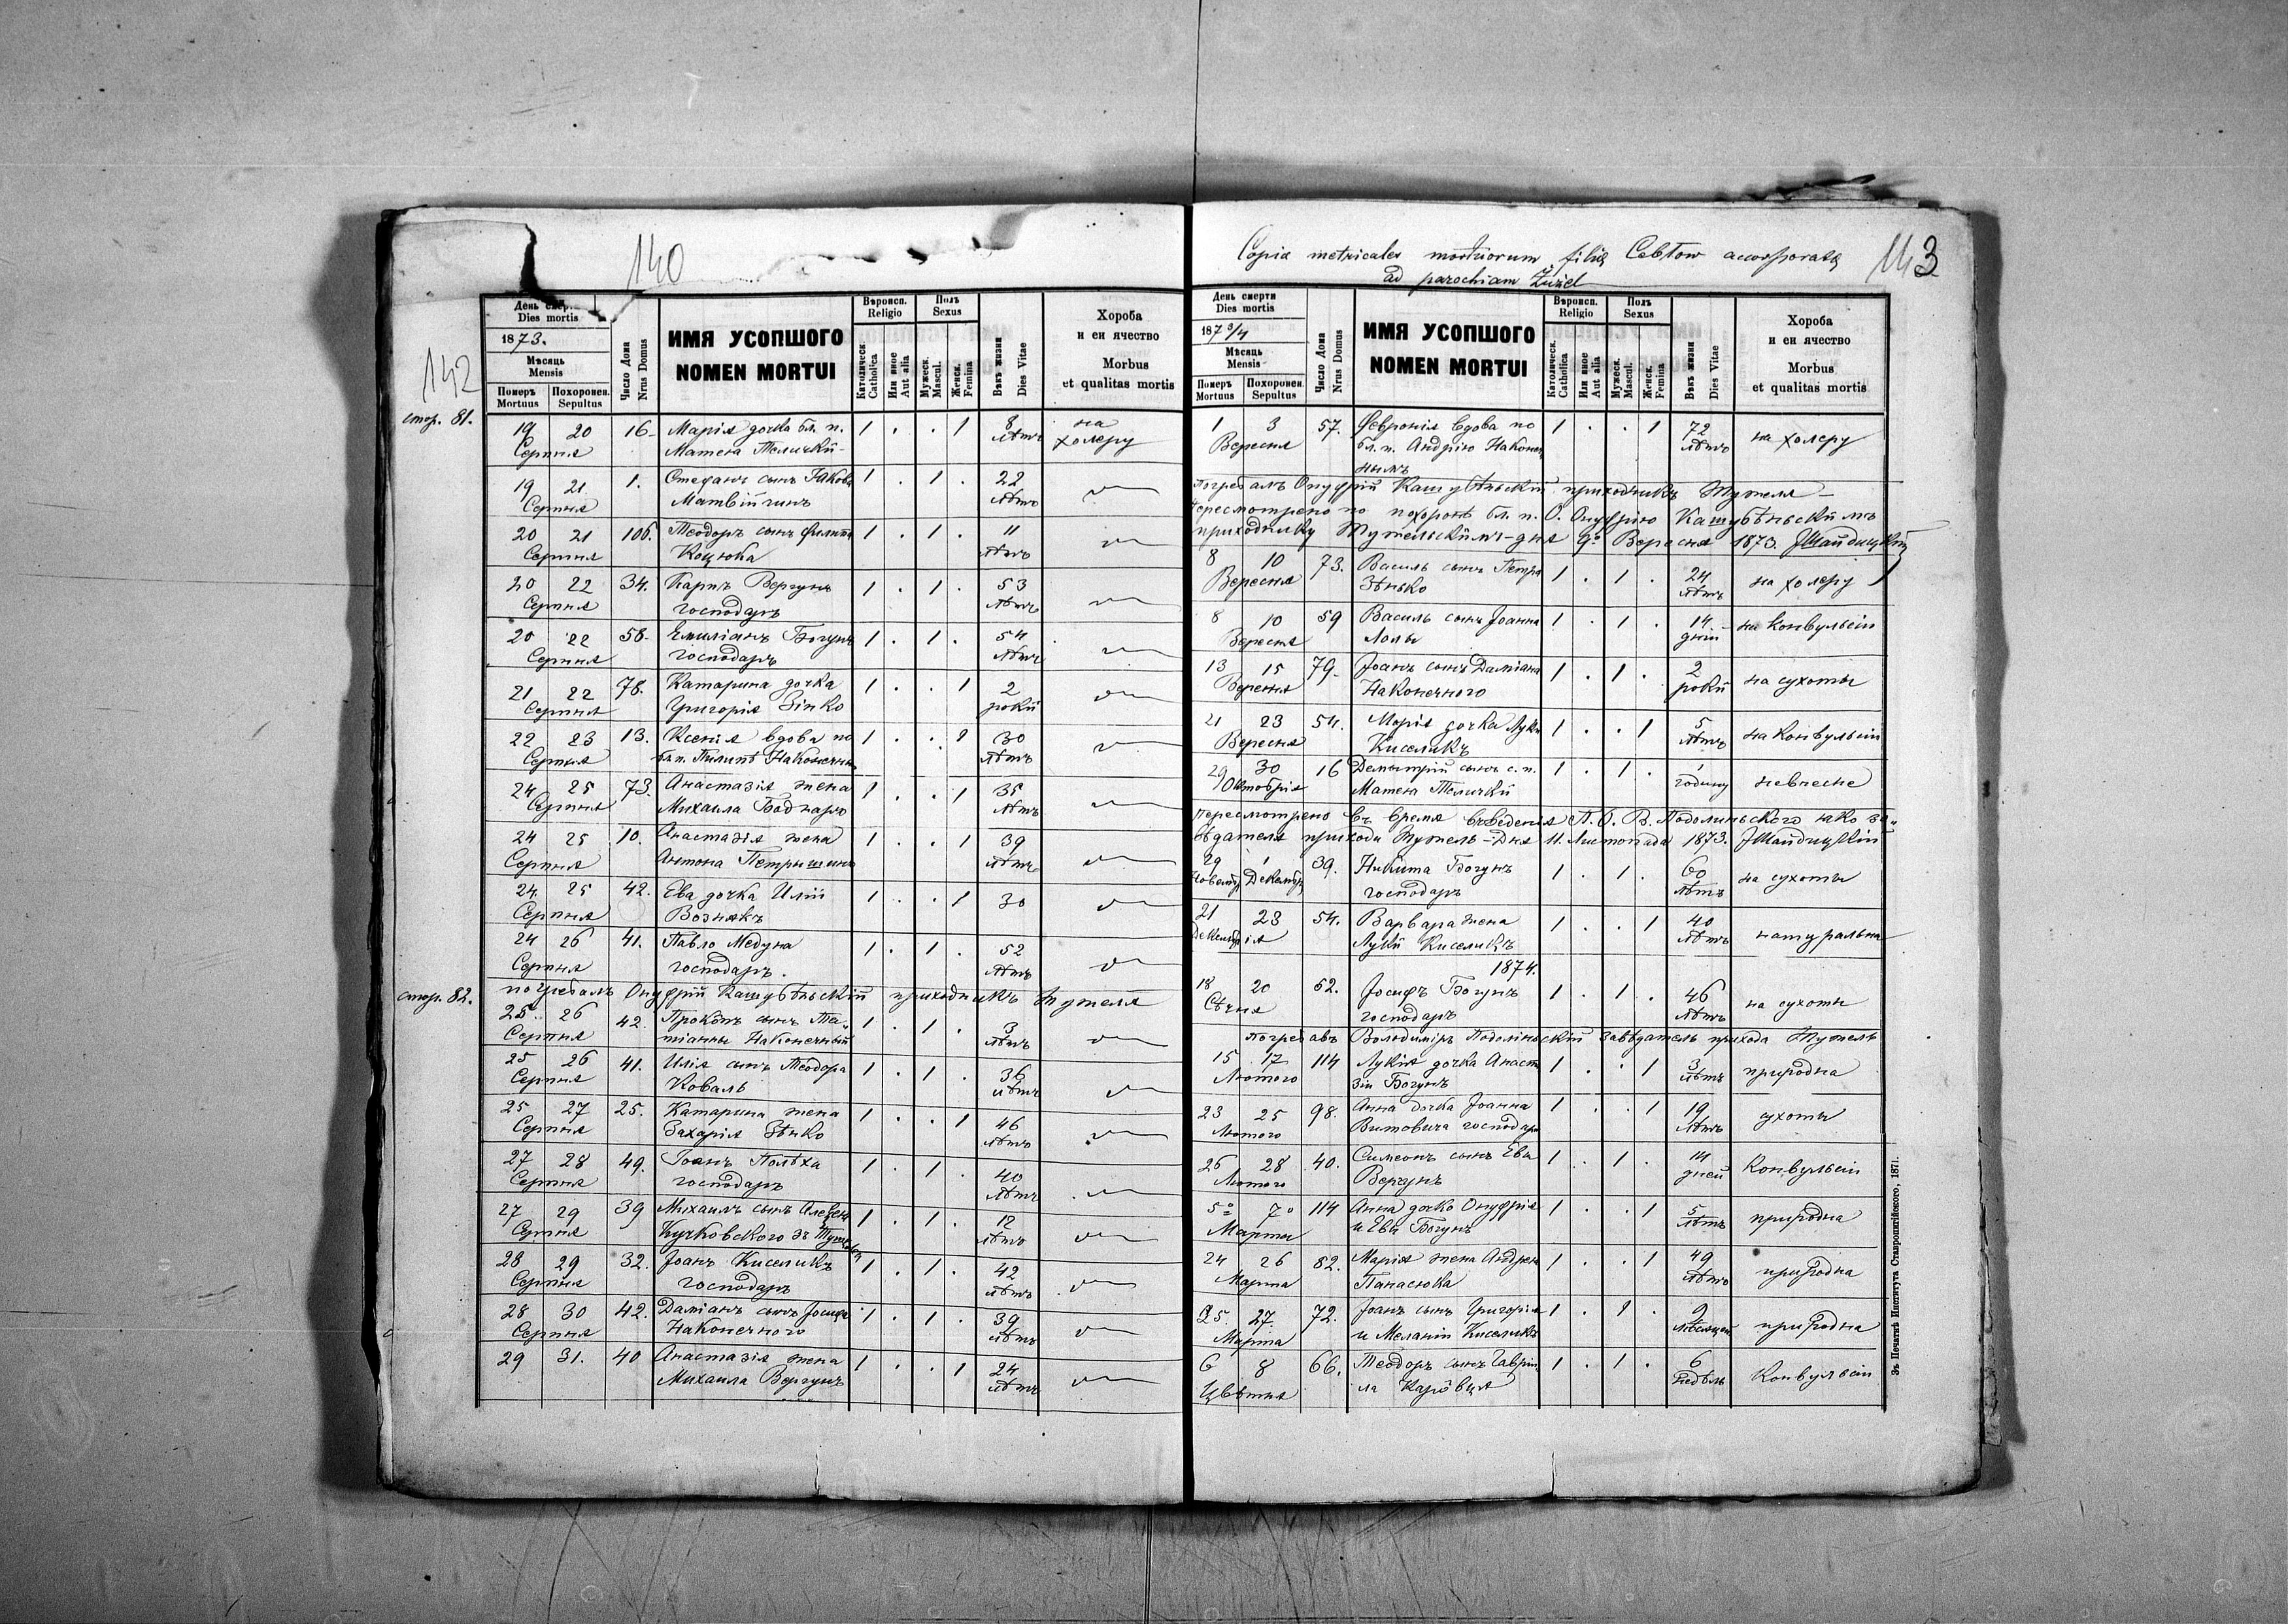 140
142
День смерт.
Dies mortis
1873.
Мѣсяць
Mensis
Померъ
Mortuus
Похоронен.
Sepultus
Число Дома
Nrus Domus
ИМЯ УСОПШОГО
NOMEN MORTUI
Вѣроисп.
Religio
Католическ.
Catholica
Или иное
Aut alia
Полъ
Sexus
Мужеск.
Mascul.
Женск.
Femina
Вѣкъ жизни
Dies Vitae
Хороба
и еи ячество
Morbus
et qualitas mortis
стор. 81.
19 20 16 Марія дочка бл. п. 1 . . 1 8 на
Серпня Матея Теличкій лѣтъ холеру
19 21 1. Стефанъ сынъ Якова 1 . 1 . 22
Серпня Матвійчинъ лѣтъ
20 21 106. Теодоръ сынъ Филипа 1 . 1 . 11
Серпня Коцюка лѣтъ
20 22 34. Карпъ Вергунъ 1 . 1 . 53
Серпня господаръ лѣтъ
20 22 58. Емиліанъ Богунъ 1 . 1 . 54
Серпня господаръ лѣтъ
21 22 78. Катарина дочка 1 . . 1 2
Серпня Григорія Зінко рокѝ
22 23 13. Ксенія вдова по 1 . . 1 30
Серпня бл. п. Пилипѣ Наконечны лѣтъ
24 25 73. Анастазія жена 1 . . 1 35
Серпня Михаила Боднаръ лѣтъ
24 25 10. Анастазія жена 1 . . 1 39
Серпня Антона Петрышинъ лѣтъ
24 25 42. Ева дочка Иліи 1 . . 1 30
Серпня Вознякъ
24 26 41. Павло Медуна 1 . 1 . 52
Серпня господаръ. лѣтъ
стор. 82.
погребалъ Онуфрій Кашубѣньскій приходникъ Тутеля
25 26 42. Прокопъ сынъ Та- 1 . 1 . 3
Серпня тіанны Наконечный лѣтъ
25 26 41. Илія сынъ Теодора 1 . 1 . 36
Серпня Коваль лѣтъ
25 27 25. Катарина жена 1 . . 1 46
Серпня Захарія Зѣнко лѣтъ
27 28 49. Іоанъ Полѣха 1 . 1 . 40
Серпня господаръ лѣтъ
27 29 39 Михаилъ сынъ 1 . 1 . 12
Серпня Кучковского зъ лѣтъ
28 29 32. Іоанъ Киселикъ 1 . 1 . 42
Серпня господаръ лѣтъ
28 30 42. Даміанъ сынъ Іосифа 1 . 1 . 39
Серпня Наконечного лѣтъ
29 31. 40 Анастазія жена 1 . . 1 24
Михаила Вергунъ лѣтъ
Copia metricales mortuorum filiæ Cebłow accorporatæ
ad parochiam Żużel
143
День смерти
Dies mortis
1873/4
Мѣсяць
Mensis
Померъ
Mortuus
Похоронен.
Sepultus
Число Дома
Nrus Domus
ИМЯ УСОПШОГО
NOMEN MORTUI
Вѣроисп.
Religio
Католическ.
Catholica
Или иное
Aut alia
Полъ
Sexus
Мужеск.
Mascul.
Женск.
Femina
Вѣкъ жизни
Dies Vitae
Хороба
и еи ячество
Morbus
et qualitas mortis
1 3 57. Февронія вдова по 1 . . 1 72 на холеру
Вересня бл. п. Андрію Наконеч лѣтъ
нымъ
погребалъ Онуфрій Кашубѣньскій приходникъ Тутеля
Пересмотрено по похоронѣ бл. п. О. Онуфрію Кашубѣньскимъ
приходнику Тутельскимъ - дня 9º Вересня 1873.
8 10 73. Василь сынъ Петра 1 . 1 . 24 на холеру
Вересня Зѣнько лѣтъ
8 10 59 Василь сынъ Іоанна 1 . 1 . 14 на конвульсіи
Вересня Лолы дній
13 15 79. Іоанъ сынъ Даміана 1 . 1 . 2 на сухоты
Вересня Наконечного рокѝ
21 23 54. Марія дочка Луки 1 . . 1 5 на конвульсіи
Вересня Киселикъ лѣтъ
29 30 16 Демытрій сынъ с. п. 1 . 1 . 1 невчесне
Октобрія Матея Теличкій годину
Пересмотрено въ время введенія П. О. В. Подолиньского яко за-
вѣдателя прихода Тутель - Дня 11. Листопада 1873.
29 1 39. Никита Богунъ 1 . 1 . 60 на сухоты
господаръ лѣтъ
21 23 54. Варвара жена 1 . . 1 40 натуральна
Декембрія Луки Киселикъ лѣтъ
1874.
18 20 52. Іосифъ Богунъ 1 . 1 . 46 на сухоты
Сѣчня господаръ лѣтъ
погребавъ Володиміръ Подолиньскій завѣдатель прихода Тутель
15 17 114 Лукія дочка Анаста 1 . . 1 3 природна
Лютого зіи Богунъ лѣтъ
23 25 98. Анна дочка Іоанна 1 . . 1 19 сухоты
Лютого Витовича господара лѣтъ
26 28 40. Симеонъ сынъ Евы 1 . 1 . 14 Конвульсіи
Лютого Вергунъ дней
5º 7º 114 Анна дочка Онуфрія 1 . . 1 5 природна
Марта и Евы Богунъ лѣтъ
24 26 82. Марія жена Андрея 1 . . 1 49 природна
Марта Панасюка лѣтъ
25. 27. 72. Іоанъ сынъ Григорія 1 . 1 . 9 природна
Марта и Меланіи Киселикъ мѣсяцей
6 8 66. Теодоръ сынъ Гаври- 1 . 1 . 6 Конвульсіи
Цвѣтня ла Карôвця недѣль
Зъ Печатнѣ Института Ставропигійского, 1871.